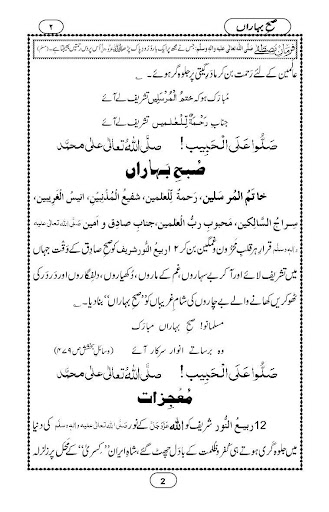 صبح بہاراں
۲
فرمانِ مصطفٰے صلی اللہ تعالیٰ علیہ والہ وسلم: جس نے مجھ پر ایک بار دُرُود پاک پڑھا
عالمین کے لئے رَحمت بن کر مادرِ گیتی پر جلوہ گر ہوئے۔
مُبارَک ہو کہ ختمُ الْمُرسَلیں تشریف لے آئے
جنابِ رَحْمَۃٌ لِّلْعٰلَمیں تشریف لے آئے
صَلُّوا عَلَی الْحَبِیب! صلَّی اللہُ تعالٰی علٰی محمَّد
صُبحِ بہاراں
خاتَمُ المُرسَلین، رَحمۃٌ لِّلعٰلمین، شفیعُ المُذنِبین، انیسُ الغَریبین،
سِراجُ السّالکین، مَحبوبِ ربُّ العٰلمین، جنابِ صادِق و امین صلی اللہ تعالیٰ علیہ
والہ وسلم قرارِ ہر قلبِ مَحزُون و غمگین بن کر ۱۲ ربیعُ النُّور شریف کو صبحِ صادِق کے وَقت جہاں
میں تشریف لائے اور آ کر بے سہاروں، غم کے ماروں، دُکھیاروں، دِلفِگاروں اور دَر دَر کی
ٹھوکریں کھانے والے بے چاروں کی شامِ غریباں کو ”صبحِ بہاراں“ بنا دیا۔
مسلمانو! صبحِ بہاراں مبارک
وہ برساتے انوار سرکار آئے (وسائلِ بخشش ص۴۷۹)
صَلُّوا عَلَی الْحَبِیب! صلَّی اللہُ تعالٰی علٰی محمَّد
مُعجِزات
12 ربیعُ النُّور شریف کو اللہ عَزَّوَجَلَّ کے نور صلی اللہ تعالیٰ علیہ والہ وسلم کی دنیا
میں جلوہ گری ہوتے ہی کُفر و ظُلمت کے بادَل چھٹ گئے، شاہِ ایران ”کِسریٰ“ کے مَحَل پر زلزلہ
2